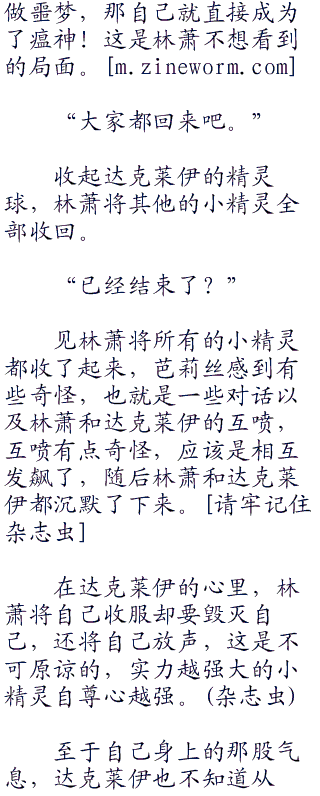 做噩梦，那自己就直接成为
了瘟神！这是林萧不想看到
的局面。[m.zineworm.com]
“大家都回来吧。”
收起达克莱伊的精灵
球，林萧将其他的小精灵全
部收回。
“已经结束了？”
见林萧将所有的小精灵
都收了起来，芭莉丝感到有
些奇怪，也就是一些对话以
及林萧和达克莱伊的互喷，
互喷有点奇怪，应该是相互
发飙了，随后林萧和达克莱
伊都沉默了下来。[请牢记住
杂志虫]
在达克莱伊的心里，林
萧将自己收服却要毁灭自
己，还将自己放声，这是不
可原谅的，实力越强大的小
精灵自尊心越强。(杂志虫)
至于自己身上的那股气
息，达克莱伊也不知道从